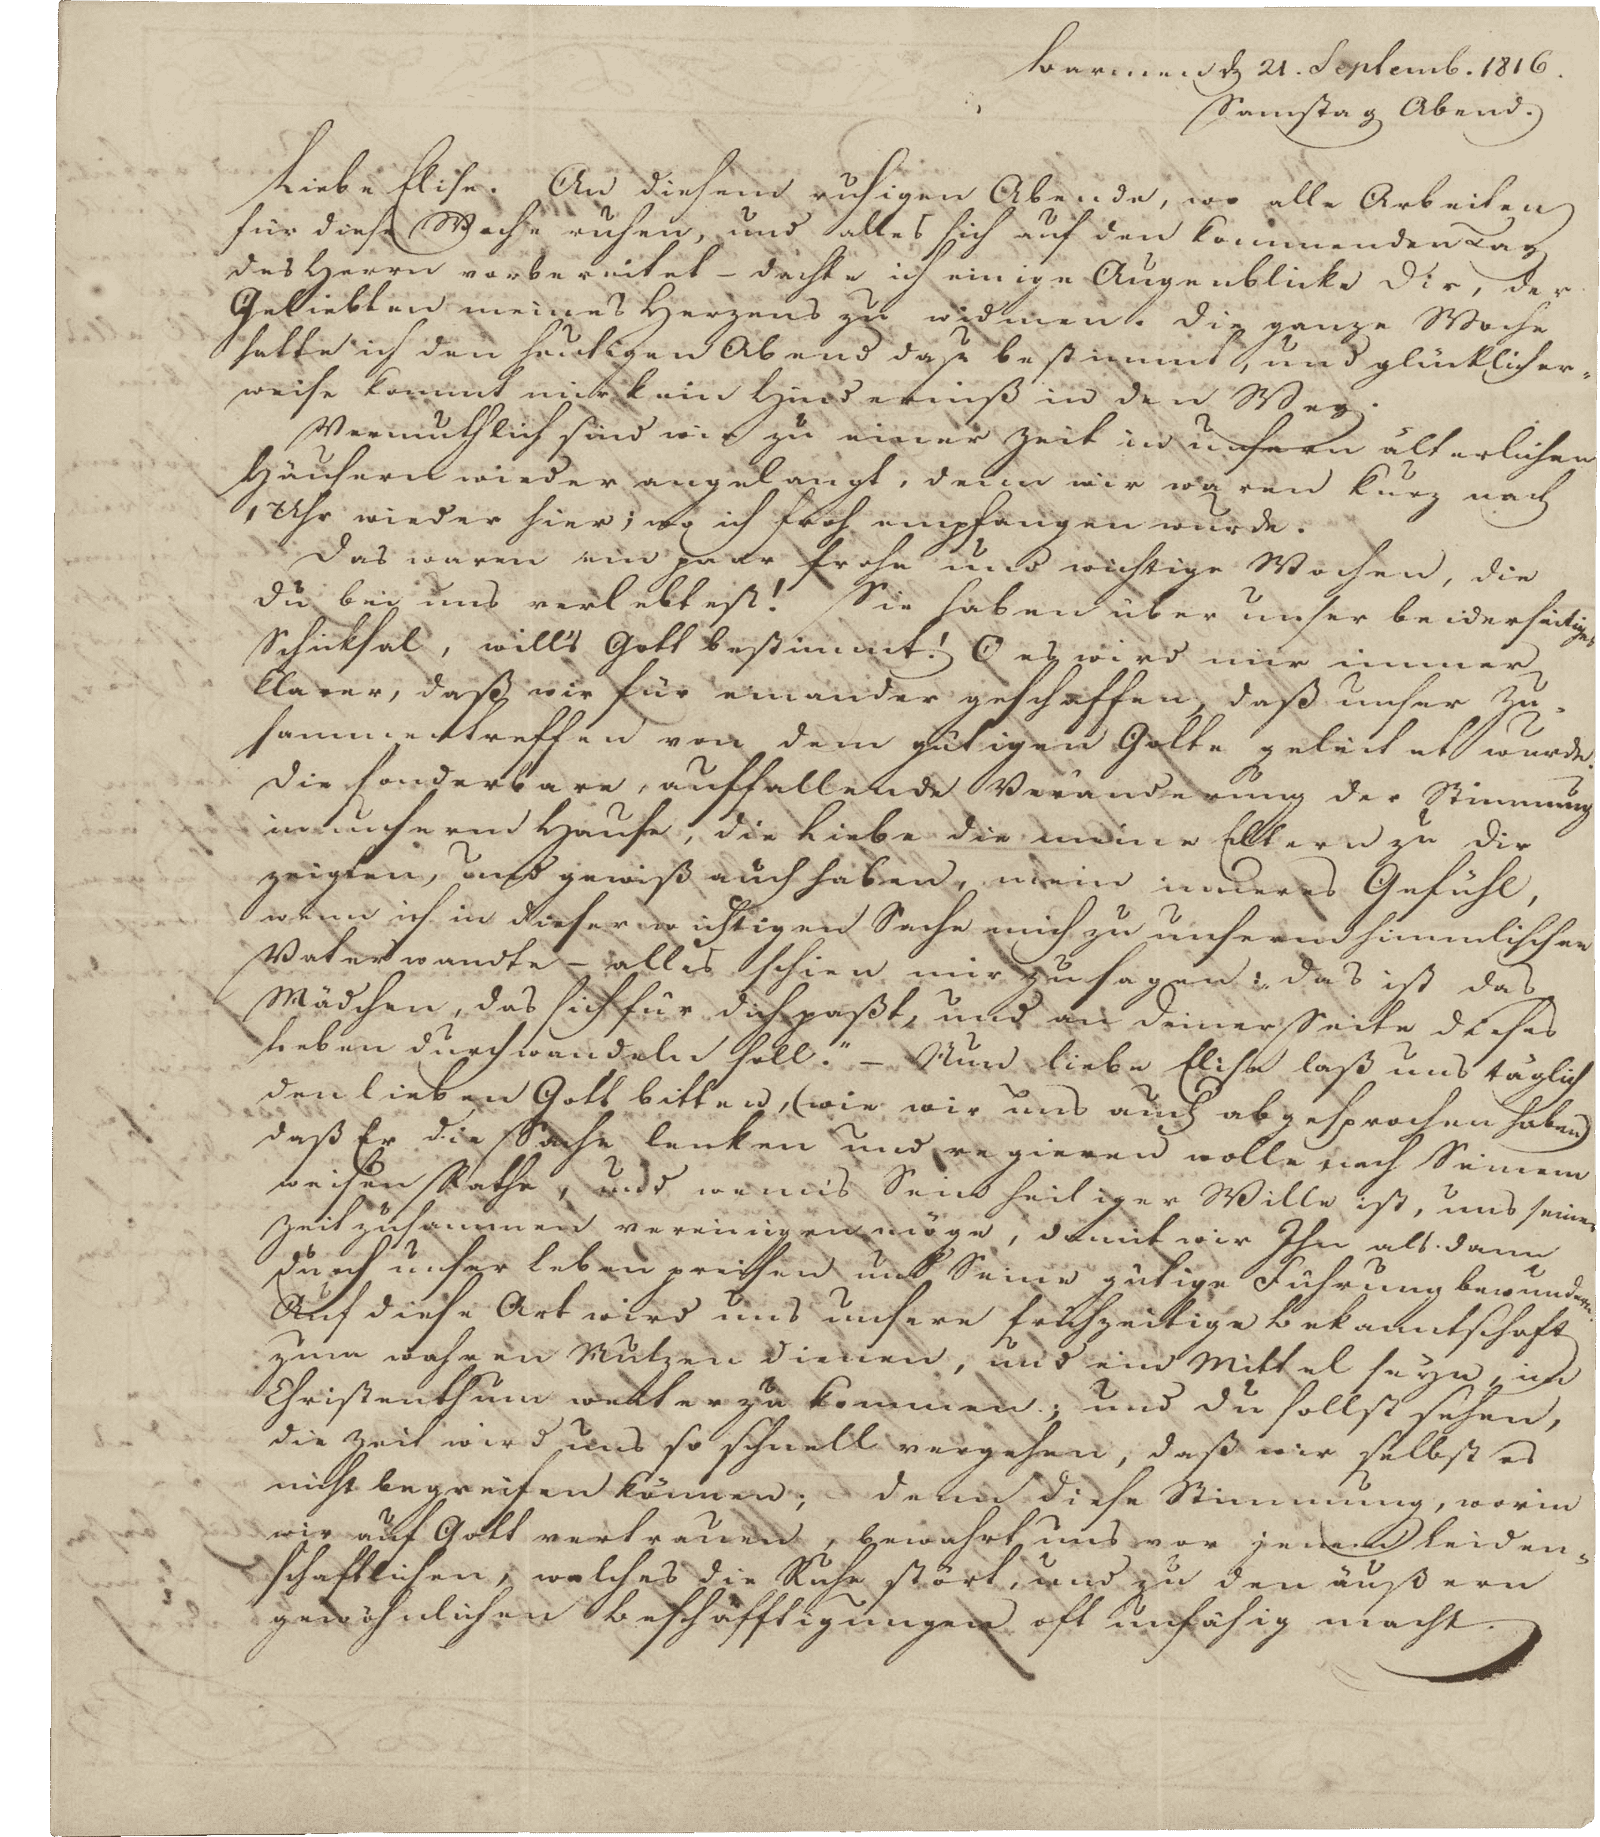 Barmen d 21. Septemb. 1816.
Samstag Abend.
Liebe Elise. An diesem ruhigen Abende, wo alle Arbeiten
für diese Woche ruhen, und alles sich auf den kommenden Tag
des Herrn vorbereitet – dachte ich einige Augenblicke Dir, der
Geliebten meines Herzens zu widmen. Die ganze Woche
hatte ich den heutigen Abend dazu bestimmt, und glücklicher-
weise kommt mir kein Hinderniß in den Weg.
Vermuthlich sind wir zu einer Zeit in unsern älterlichen
Häusern wieder angelangt, denn wir waren kurz nach
1 Uhr wieder hier; wo ich froh empfangen wurde.
Das waren ein paar frohe und wichtige Wochen, die
Du bei uns verlebtest! Sie haben über unser beiderseitiges
Schicksal, will's Gott bestimmt! O es wird mir immer
klarer, daß wir für einander geschaffen, daß unser Zu-
sammentreffen von dem gütigen Gotte geleitet wurde.
Die sonderbare, auffallende Veränderung der Stimmung
in unserm Hause, die Liebe die meine Eltern zu Dir
zeigten, und gewiß auch haben, mein inneres Gefühl,
wenn ich in dieser wichtigen Sache mich zu unserm himmlischen
Vater wandte – alles schien mir zu sagen: „das ist das
Mädchen, das sich für dich paßt, und an deiner Seite dieses
Leben durchwandeln soll.“ – Nun liebe Elise laß uns täglich
den lieben Gott bitten, (wie wir uns auch abgesprochen haben)
daß Er die Sache lenken und regieren wolle nach Seinem
weisen Rathe, und wenn's Sein heiliger Wille ist, uns seiner
Zeit zusammen vereinigen möge, damit wir Ihn als dann
durch unser Leben preisen und Seine gütige Führung bewundern.
Auf diese Art wird uns unsere frühzeitige Bekanntschaft
zum wahren Nutzen dienen, und ein Mittel seyn, im
Christenthum weiter zu kommen; und Du sollst sehen,
die Zeit wird uns so schnell vergehen, daß wir selbst es
nicht begreifen können; denn diese Stimmung, worin
wir auf Gott vertrauen, bewahrt uns vor jenem Leiden-
schaftlichen, welches die Ruhe stört, und zu den äußern
gewöhnlichen Beschäfftigungen oft unfähig macht.